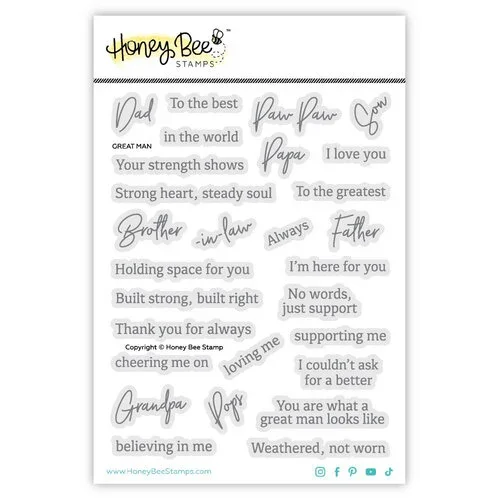 Honey Bee
STAMPS
™
Dad
To the best
Paw Paw
Son
in the world
GREAT MAN
Papa
I love you
Your strength shows
Strong heart, steady soul
To the greatest
Brother
-in-law
Always
Father
Holding space for you
I'm here for you
Built strong, built right
No words,
just support
Thank you for always
supporting me
Copyright © Honey Bee Stamp
loving me
cheering me on
I couldn't ask
for a better
Grandpa
Pops
You are what a
great man looks like
believing in me
Weathered, not worn
www.HoneyBeeStamps.com